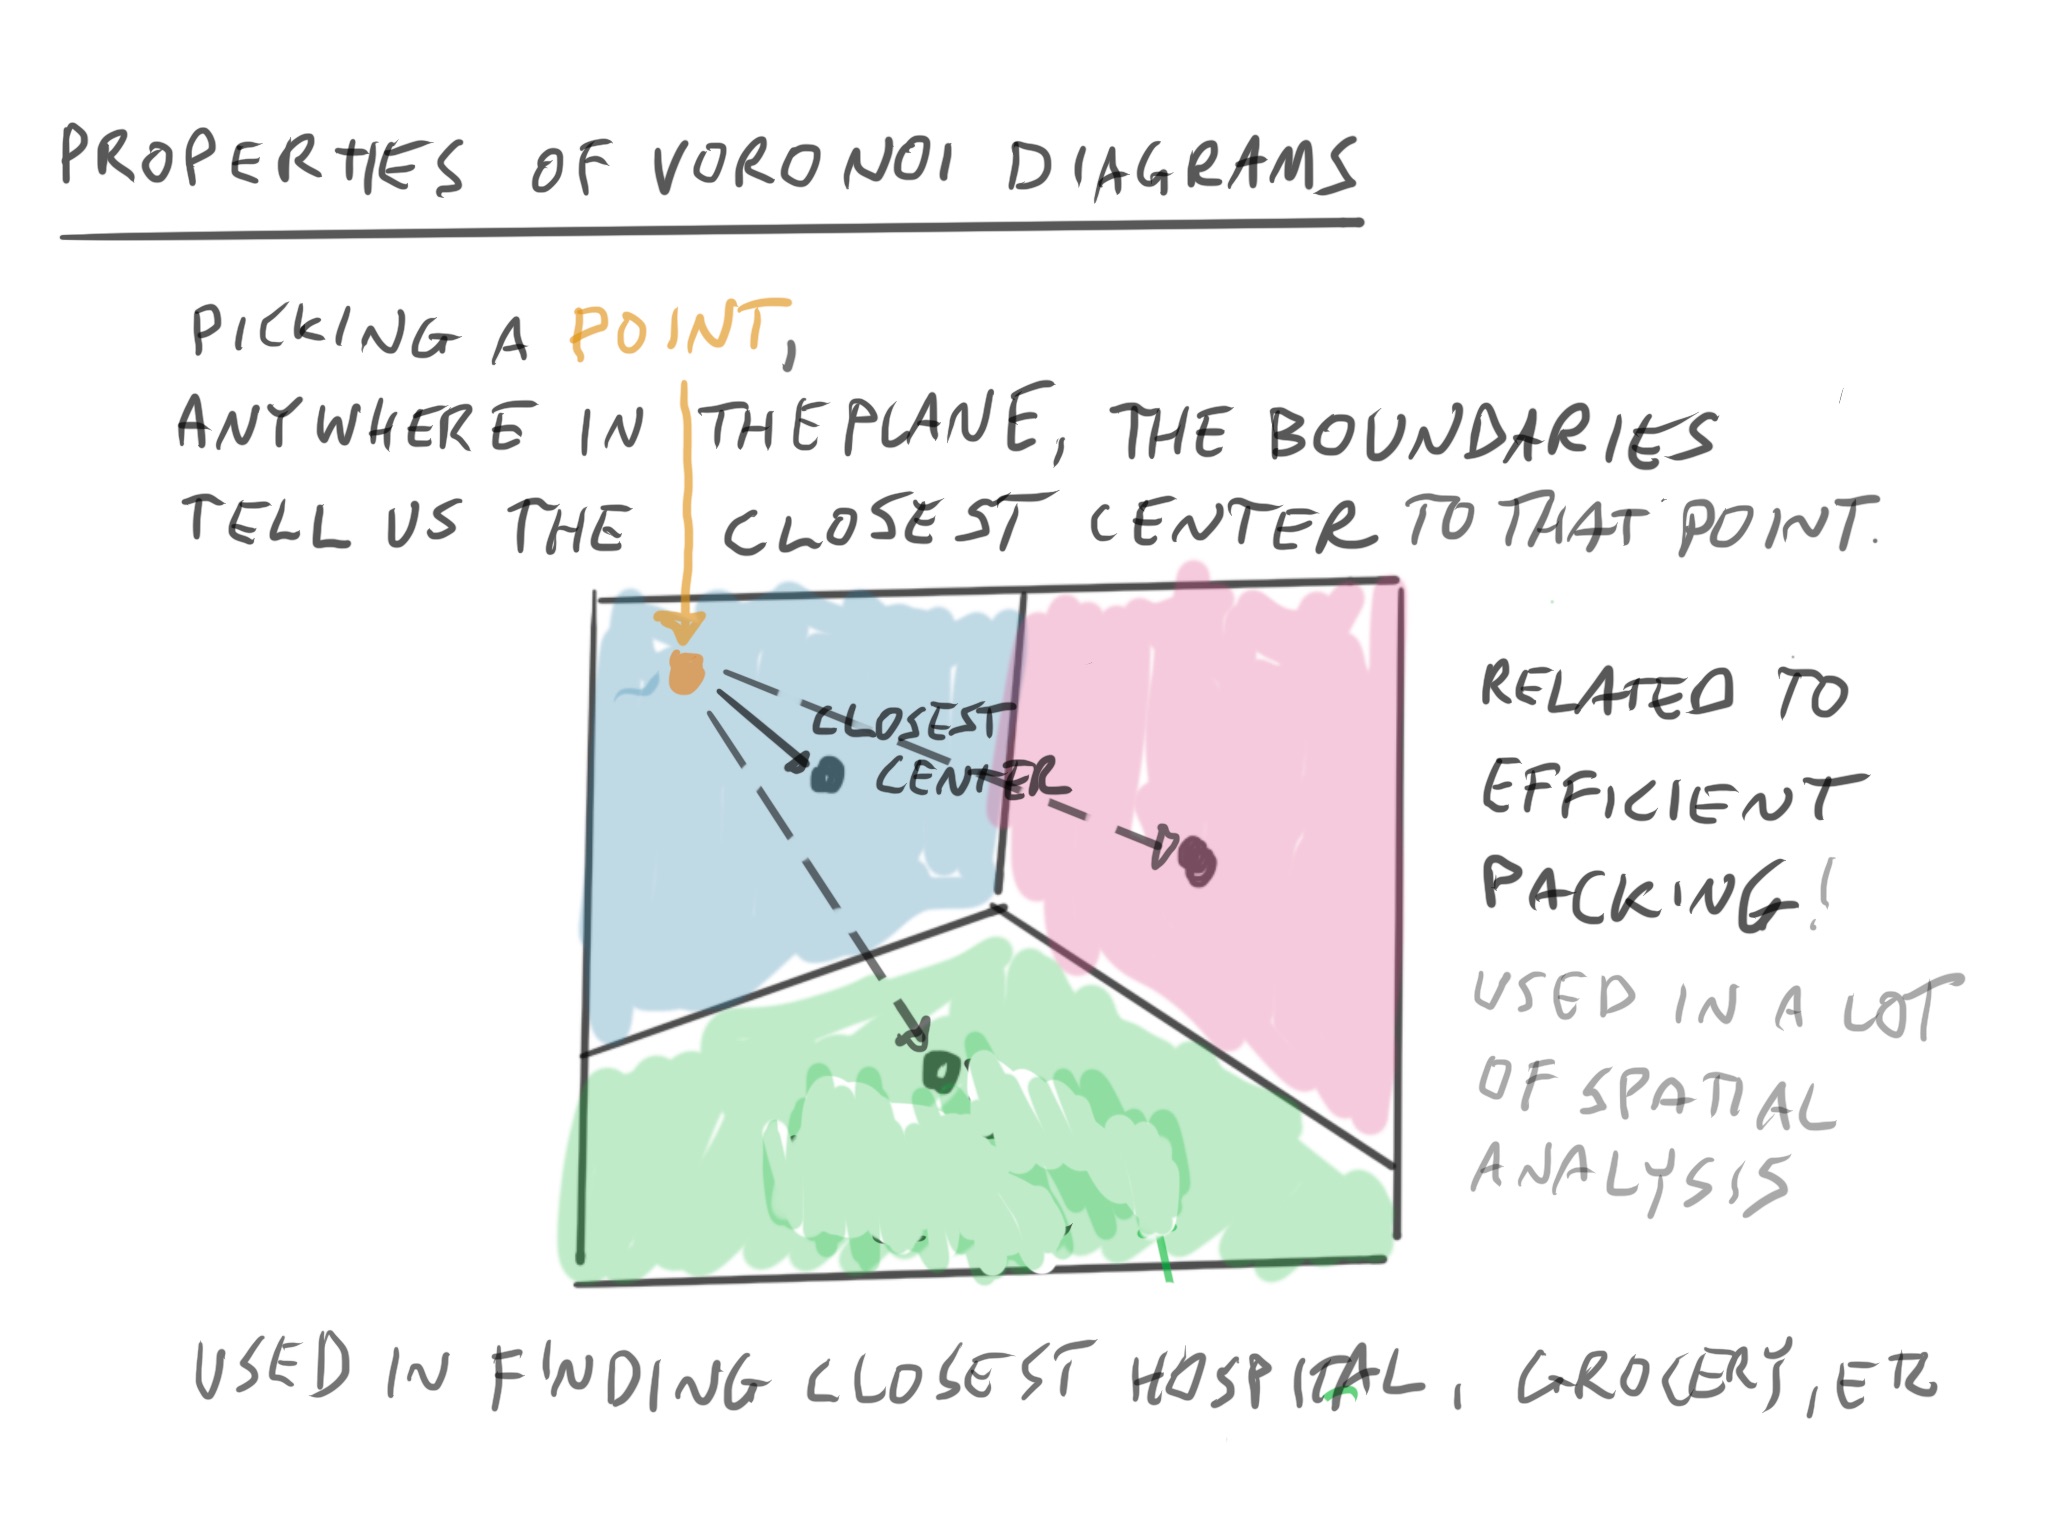 PROPERTIES OF VORONOI DIAGRAMS
PICKING A POINT,
ANYWHERE IN THE PLANE, THE BOUNDARIES
TELL US THE CLOSEST CENTER TO THAT POINT.
CLOSEST
CENTER
RELATED TO
EFFICIENT
PACKING!
USED IN A LOT
OF SPATIAL
ANALYSIS
USED IN FINDING CLOSEST HOSPITAL, GROCERY, ETC